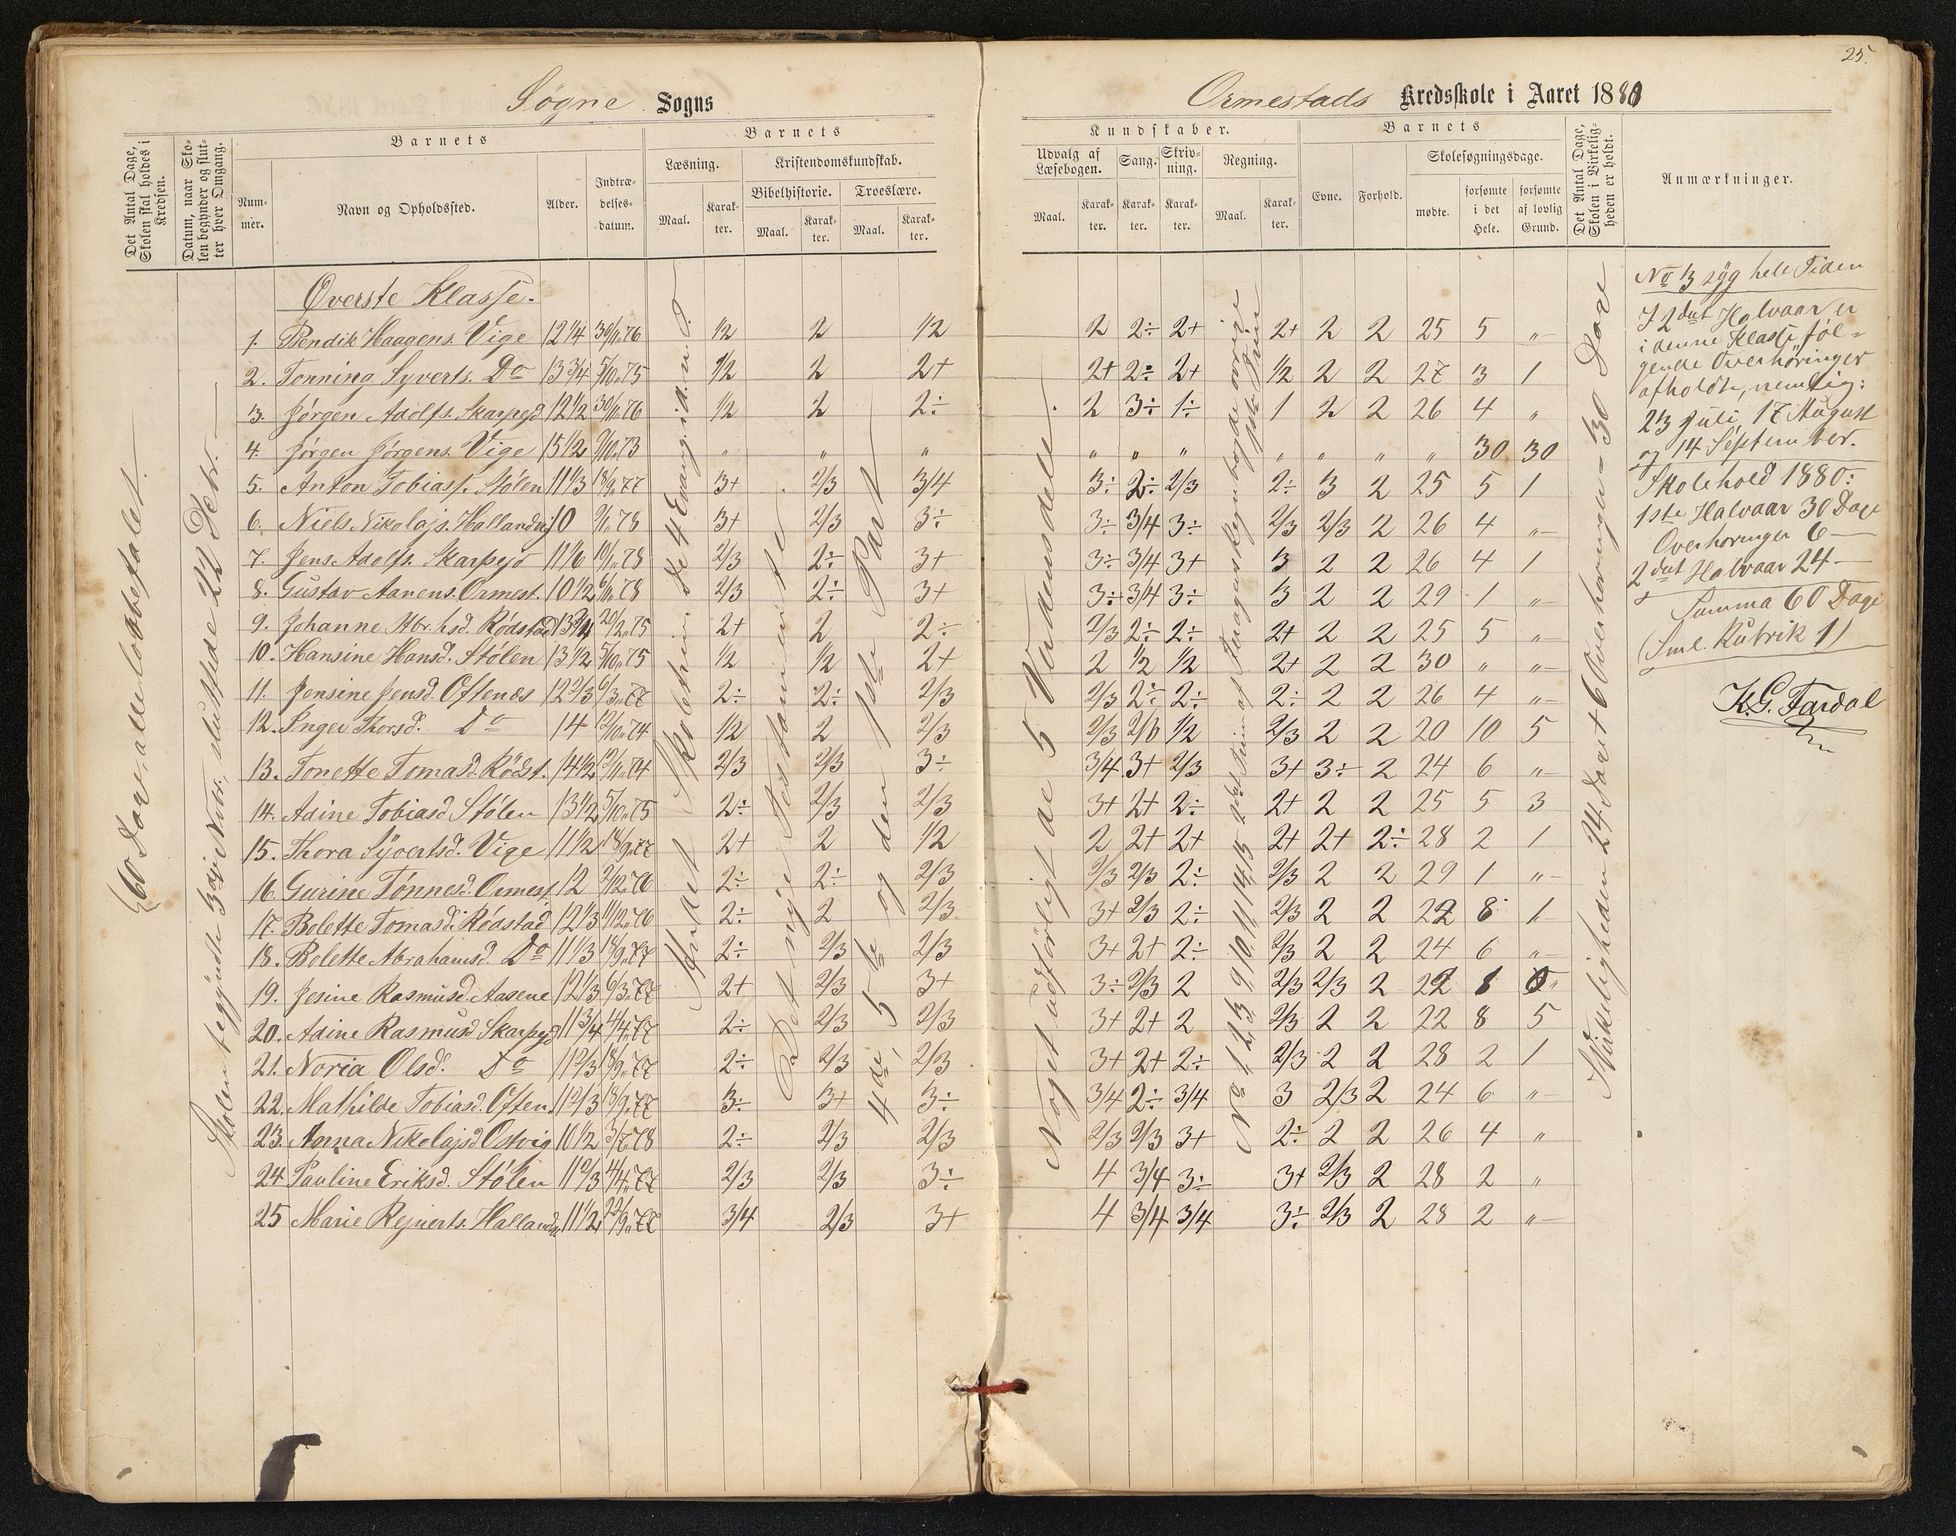 25.
Søgne Sogns
Ormestads Kredsskole i Aaret 1880
Det Antal Dage, Skolen skal holdes i Kredsen.
Datum, naar Skolen begynder og slutter hver Omgang.
Barnets
Nummer.
Navn og Opholdssted.
Alder.
Indtrædelsesdatum.
Barnets
Læsning.
Maal.
Karakter.
Kristendomskundskab.
Bibelhistorie.
Maal.
Karakter.
Troeslære.
Maal.
Karakter.
Kundskaber.
Udvalg af Læsebogen.
Maal.
Karakter.
Sang.
Karakter.
Skrivning.
Karakter.
Regning.
Maal.
Karakter.
Barnets
Evne.
Forhold.
Skolesøgningsdage.
mødte.
forsømte i det Hele.
forsømte af lovlig Grund.
Det Antal Dage, Skolen i Virkeligheden er holdt.
Anmærkninger.
Øverste Klasse.
1. Bendik Haagens. Vige 12 1/4 30/11 76 1/2 2 1/2 2 2÷ 2+ 2+ 2 2 25 5 "
2. Tønning Syverts. Do 13 3/4 5/10 75 1/2 2 2+ 2+ 2÷ 2+ 1/2 2 2 27 3 1
3. Jørgen Adolfs. Skarpejd 12 1/2 30/11 76 1/2 2 2÷ 2 3÷ 1÷ 1 2 2 26 4 "
4. Jørgen Jørgens. Vige 15 1/2 9/10 73 " " " " " " " " " " 30 30
5. Anton Tobiass. Stølen 11 1/3 18/9 77 3+ 2/3 3/4 3÷ 2÷ 2/3 2÷ 3 2 25 5 1
6. Niels Nikolajs. Hallandvig 10 9/1 78 3+ 2/3 3÷ 3÷ 3/4 3÷ 2/3 2/3 2 26 4 "
7. Jens Adolfs. Skarpejd 11 1/6 10/1 78 2/3 2÷ 3+ 3÷ 3/4 3+ 3 2 2 26 4 1
8. Gustav Aanens. Ormest. 10 1/2 6/11 78 2/3 2÷ 3+ 3÷ 3/4 3÷ 3 2 2 29 1 "
9. Johanne Abr.hsd. Rødstad 13 3/4 20/2 75 2+ 2 2÷ 2/3 2÷ 2÷ 2+ 2 2 25 5 "
10. Hansine Hansd. Stølen 13 1/2 5/10 75 1/2 1/2 2+ 2 1/2 1/2 2+ 2 2 30 " "
11. Jensine Jensd. Oftenæs 12 2/3 6/3 77 2÷ 2÷ 2/3 2/3 2÷ 2÷ 2÷ 2 2 26 4 "
12. Inger Thorsd. Do 14 12/10 74 1/2 2 2/3 2/3 2/0 1/2 2/3 2 2 20 10 5
13. Tonette Tomasd. Rødst. 14 1/2 12/11 74 2/3 2/3 3÷ 3/4 3+ 2/3 3+ 3÷ 2 24 6 "
14. Adine Tobiasd. Stølen 13 1/2 5/10 75 2÷ 2/3 2/3 3+ 2+ 2÷ 2+ 2 2 25 5 3
15. Thora Syvertsd. Vige 11 1/2 18/9 77 2+ 2 1/2 2 2+ 2+ 2+ 2+ 2÷ 28 2 1
16. Gurine Tønnesd. Ormest. 12 2/12 76 2÷ 2÷ 2/3 2/3 2/3 2÷ 2/3 2 2 29 1 "
17. Bolette Tomasd. Rødstad 12 1/3 11/12 76 2÷ 2 2/3 3+ 2/3 2÷ 2/3 2 2 22 8 1
18. Bolette Abrahamsd. Do 11 1/3 18/9 77 2÷ 2/3 2/3 3+ 2+ 2÷ 2/3 2 2 24 6 "
19. Jesine Rasmusd. Aasene 12 1/3 6/3 77 2+ 2/3 3+ 3÷ 2/3 2 2/3 2/3 2 22 8 "
20. Adine Rasmusd Skarpejd 11 3/4 4/4 77 2÷ 2/3 2/3 3+ 2+ 2 2/3 2 2 22 8 5
21. Noria Olsd. Do 11 2/3 18/9 77 2÷ 2/3 2/3 3+ 2+ 2÷ 2/3 2 2 28 2 1
22. Mathilde Tobiasd. Often. 11 2/3 18/9 77 3÷ 3+ 3÷ 3/4 2÷ 3/4 3 2/3 2 24 6 "
23. Anna Nikolajsd Ostvig 10 1/2 3/7 78 2÷ 2/3 2/3 2/3 2/3 3+ 2÷ 2 2 26 4 "
24 Pauline Eriksd. Stølen 11 2/3 4/4 77 2/3 2/3 3÷ 4 3/4 3÷ 3+ 2/3 2 28 2 "
25 Marie Rejnerts. Hallandv. 11 1/2 22/9 77 3/4 2/3 3+ 4 3/4 3/4 3÷ 2/3 2 28 2 "
60 Dage, alle lovbefalet.
Skolen begyndte 3die Novbr., sluttede 22 Decbr.
de 4 Evang. i d. n. O.
Det nye Testamente
4de, 5te og den 1ste Part
Noget udførligt ae 5 Verdensdele.
Virkeligheden 24 Dage + 6 Overhøringer = 30 Dage
No 13 syg hele Tiden
I 2det Halvaar er
i denne Klasse føl-
gende Overhøringer
afholdte, nemlig:
23 Juli, 17 August
og 14 September.
Skolehold 1880:
1ste Halvaar 30 Dage
Overhøringer 6 —
2det Halvaar 24 —
Summa 60 Dage
(Sml. Rubrik 1)
K. G. Fardal